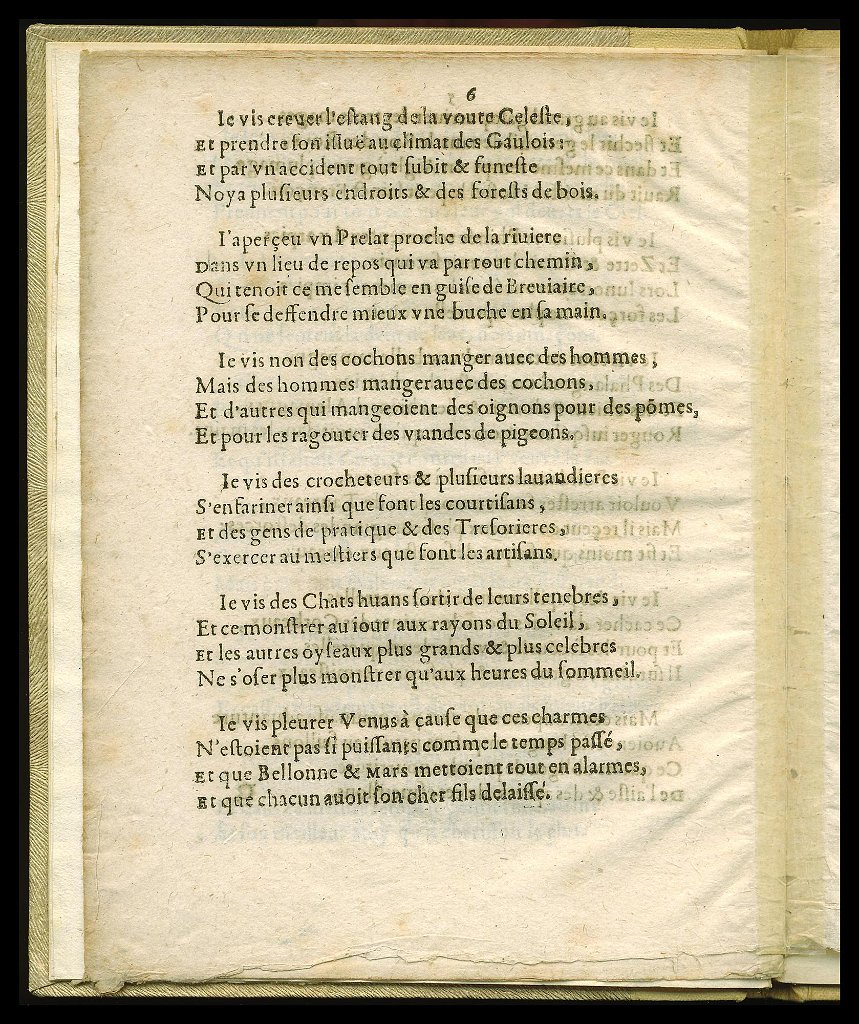 6
Ie vis creuer l'eſtang de la voute Celeſte,
Et prendre ſon iſſuë au climat des Gaulois:
Et par vn accident tout ſubit & funeſte
Noya pluſieurs endroits & des foreſts de bois.
I'aperçeu vn Prelat proche de la riuiere
Dans vn lieu de repos qui va par tout chemin,
Qui tenoit ce me ſemble en guiſe de Breuiaire,
Pour ſe deffendre mieux vne buche en ſa main.
Ie vis non des cochons manger auec des hommes,
Mais des hommes manger auec des cochons,
Et d'autres qui mangeoient des oignons pour des põmes,
Et pour les ragouter des viandes de pigeons.
Ie vis des crocheteurs & pluſieurs lauandieres
S'enfariner ainſi que font les courtiſans,
Et des gens de pratique & des Treſorieres,
S'exercer au meſtiers que font les artiſans.
Ie vis des Chats huans ſortir de leurs tenebres,
Et ce monſtrer au iour aux rayons du Soleil,
Et les autres oyſeaux plus grands & plus celebres
Ne s'oſer plus monſtrer qu'aux heures du ſommeil.
Ie vis pleurer Venus à cauſe que ces charmes
N'eſtoient pas ſi puiſſants comme le temps paſſé,
Et que Bellonne & Mars mettoient tout en alarmes,
Et que chacun auoit ſon cher fils delaiſſé.